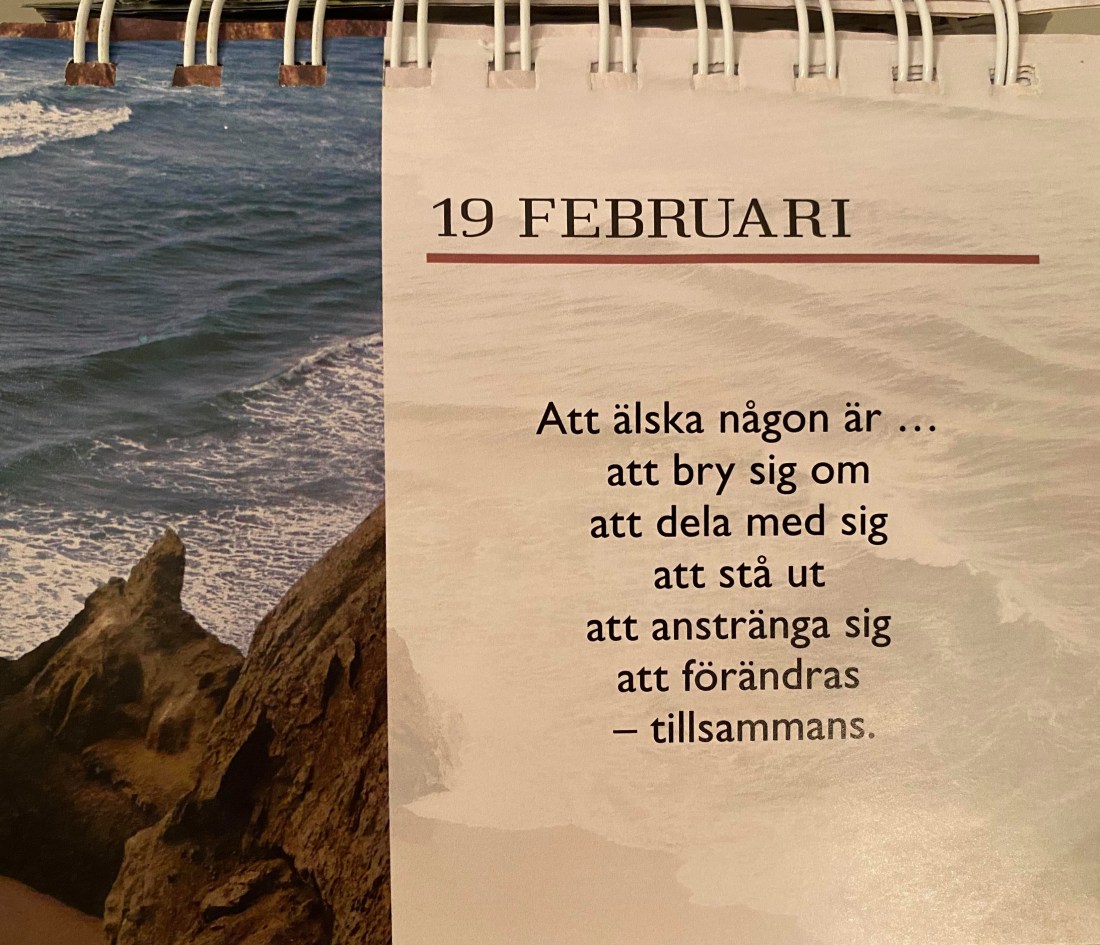 19 FEBRUARI
Att älska någon är ...
att bry sig om
att dela med sig
att stå ut
att anstränga sig
att förändras
– tillsammans.